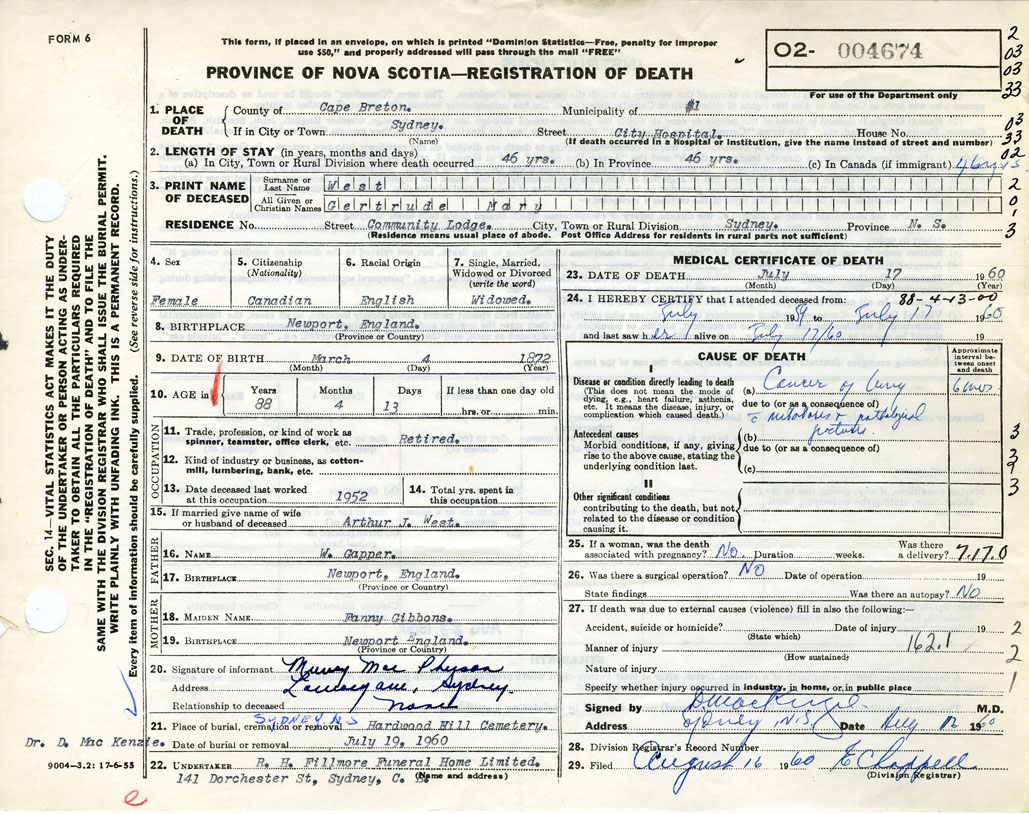 FORM 6
This form, if placed in an envelope, on which is printed "Dominion Statistics—Free, penalty for improper
use $50," and properly addressed will pass through the mail "FREE"
PROVINCE OF NOVA SCOTIA—REGISTRATION OF DEATH
O2- 004674
For use of the Department only
2
03
03
33
03
33
02
2
0
1
3
SEC. 14—VITAL STATISTICS ACT MAKES IT THE DUTY
OF THE UNDERTAKER OR PERSON ACTING AS UNDER-
TAKER TO OBTAIN ALL THE PARTICULARS REQUIRED
IN THE "REGISTRATION OF DEATH" AND TO FILE THE
SAME WITH THE DIVISION REGISTRAR WHO SHALL ISSUE THE BURIAL PERMIT.
WRITE PLAINLY WITH UNFADING INK. THIS IS A PERMANENT RECORD.
Every item of information should be carefully supplied. (See reverse side for instructions.)
1. PLACE OF DEATH
County of Cape Breton. Municipality of #1
If in City or Town Sydney. Street City Hospital. House No.
(Name) (If death occurred in a Hospital or Institution, give the name instead of street and number)
2. LENGTH OF STAY (in years, months and days)
(a) In City, Town or Rural Division where death occurred 46 yrs. (b) In Province 46 yrs. (c) In Canada (if immigrant) 46 yrs
3. PRINT NAME OF DECEASED
Surname or Last Name West
All Given or Christian Names Gertrude Mary
RESIDENCE No. Street Community Lodge. City, Town or Rural Division Sydney. Province N. S.
(Residence means usual place of abode. Post Office Address for residents in rural parts not sufficient)
4. Sex
Female
5. Citizenship
(Nationality)
Canadian
6. Racial Origin
English
7. Single, Married,
Widowed or Divorced
(write the word)
Widowed.
8. BIRTHPLACE Newport, England.
(Province or Country)
9. DATE OF BIRTH March 4 1872
(Month) (Day) (Year)
10. AGE in
Years Months Days If less than one day old
88 4 13 hrs. or min.
OCCUPATION
11. Trade, profession, or kind of work as
spinner, teamster, office clerk, etc. Retired.
12. Kind of industry or business, as cotton-
mill, lumbering, bank, etc.
13. Date deceased last worked
at this occupation 1952
14. Total yrs. spent in
this occupation
15. If married give name of wife
or husband of deceased Arthur J. West.
FATHER
16. NAME W. Gapper.
17. BIRTHPLACE Newport, England.
(Province or Country)
MOTHER
18. MAIDEN NAME Fanny Gibbons.
19. BIRTHPLACE Newport England.
(Province or Country)
20. Signature of informant Murray Mac Pherson
Address Sydney.
Relationship to deceased None
21. Place of burial, cremation or removal SYDNEY N S Hardwood Hill Cemetery.
Date of burial or removal July 19, 1960
22. UNDERTAKER R. H. Fillmore Funeral Home Limited.
141 Dorchester St, Sydney, C. B. (Name and address)
Dr. D. Mac Kenzie.
9004—3.2: 17-6-55
e
MEDICAL CERTIFICATE OF DEATH
23. DATE OF DEATH July 17 1960
(Month) (Day) (Year)
24. I HEREBY CERTIFY that I attended deceased from: 88-4-13-00
July 1959 to July 17 1960
and last saw her alive on July 17/60 19
CAUSE OF DEATH
Approximate
interval be-
tween onset
and death
I
Disease or condition directly leading to death
(This does not mean the mode of
dying, e.g., heart failure, asthenia,
etc. It means the disease, injury, or
complication which caused death.)
(a) Cancer of lung 6 mos.
due to (or as a consequence of)
c metastases & pathological
fractures.
Antecedent causes
Morbid conditions, if any, giving
rise to the above cause, stating the
underlying condition last.
(b)
due to (or as a consequence of)
(c)
3
3
9
3
II
Other significant conditions
contributing to the death, but not
related to the disease or condition
causing it.
25. If a woman, was the death
associated with pregnancy? No. Duration weeks. Was there
a delivery? 7.17.0
26. Was there a surgical operation? No Date of operation 19
State findings Was there an autopsy? No
27. If death was due to external causes (violence) fill in also the following:—
Accident, suicide or homicide? Date of injury 19
(State which)
Manner of injury 162.1
(How sustained)
Nature of injury
Specify whether injury occurred in industry, in home, or in public place
2
2
1
Signed by D MacKenzie M.D.
Address Sydney, N.S. Date Aug 12 1960
28. Division Registrar's Record Number
29. Filed August 16 1960 E Chappell
(Division Registrar)